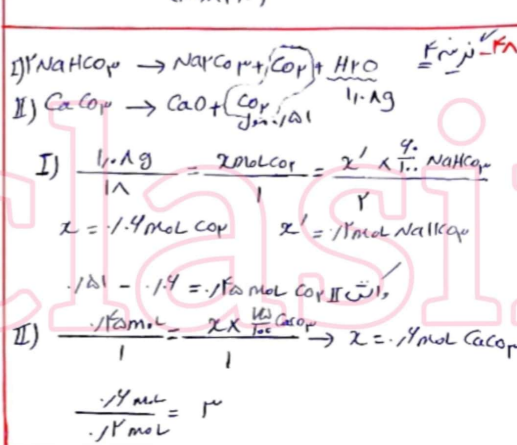 ۴۸- گزینه ۴
I) ۲NaHCo۳ → Na۲Co۳ + Co۲ + H۲O
۱٫۰۸g
II) CaCo۳ → CaO + Co۲
۰/۵۱ مول
I) ۱٫۰۸g / ۱۸ = x mol co۲ / ۱ = x' × ۶۰/۱۰۰ NaHCo۳ / ۲
x = ۰/۰۶ mol Co۲ x' = ۰/۲ mol NaHCo۳
۰/۵۱ - ۰/۰۶ = ۰/۴۵ mol Co۲ II واکنش
II) ۰/۴۵ mol / ۱ = x × ۷۵/۱۰۰ CaCo۳ / ۱ → x = ۰/۶ mol CaCo۳
۰/۶ mol / ۰/۲ mol = ۳
clasi